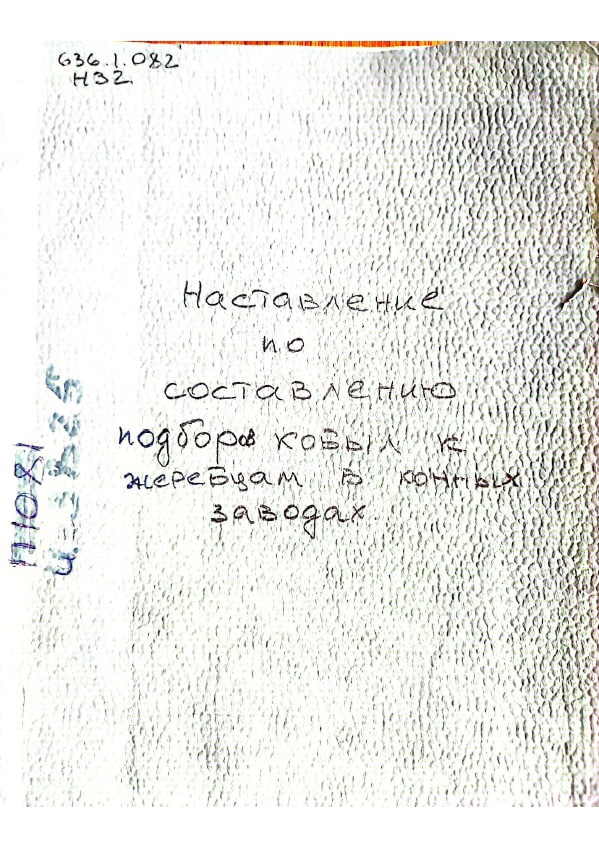 636.1.082
Н32
Наставление
по
составлению
подборов кобыл к
жеребцам в конных
заводах
П1081